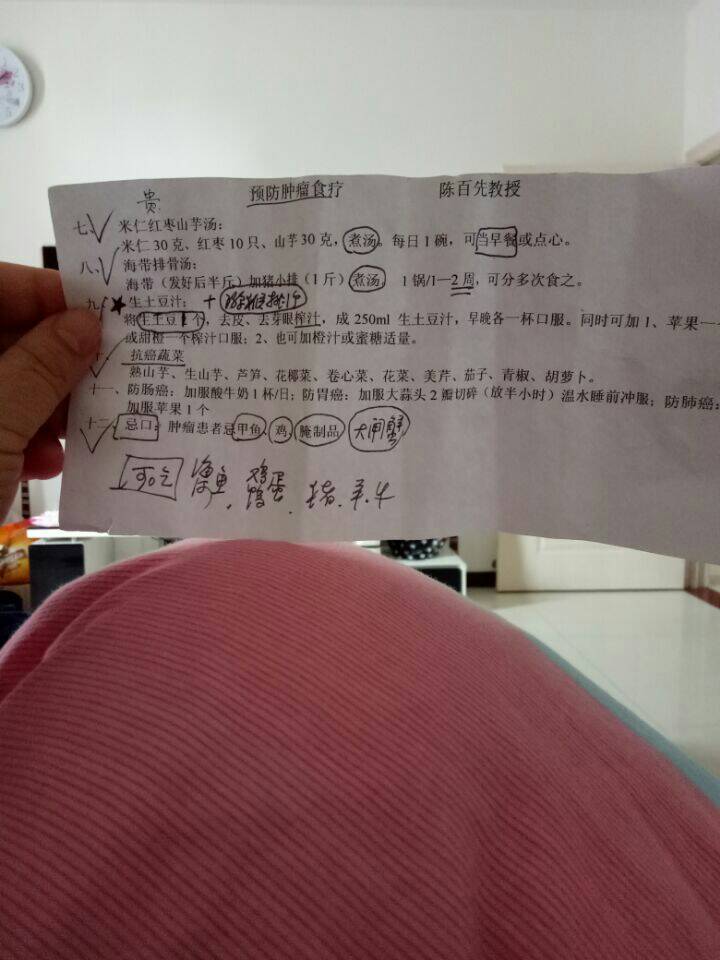 预防肿瘤食疗 陈百先教授
贵
七、米仁红枣山芋汤：
米仁30克、红枣10只、山芋30克，煮汤。每日1碗，可当早餐或点心。
八、海带排骨汤：
海带（发好后半斤）加猪小排（1斤）煮汤， 1锅/1—2周，可分多次食之。
九、★生土豆汁： +
将生土豆1个，去皮、去芽眼榨汁，成250ml生土豆汁，早晚各一杯口服。同时可加1、苹果一
或甜橙一个榨汁口服；2、也可加橙汁或蜜糖适量。
十、抗癌蔬菜
熟山芋、生山芋、芦笋、花椰菜、卷心菜、花菜、美芹、茄子、青椒、胡萝卜。
十一、防肠癌：加服酸牛奶1杯/日；防胃癌：加服大蒜头2瓣切碎（放半小时）温水睡前冲服；防肺癌：
加服苹果1个
十二、忌口：肿瘤患者忌甲鱼、鸡、腌制品 大闸蟹
可吃 海鱼、鸡鸭蛋、猪、羊、牛